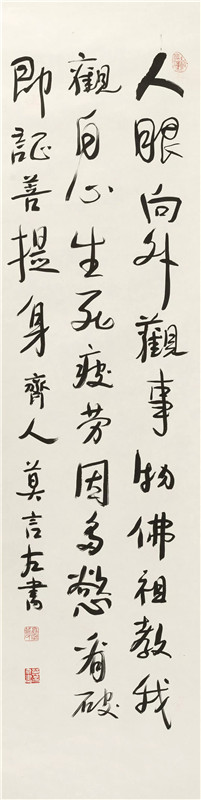 人眼向外觀事物佛祖教我
觀自心生死疲劳因多慾看破
即証善提身齊人莫言左書